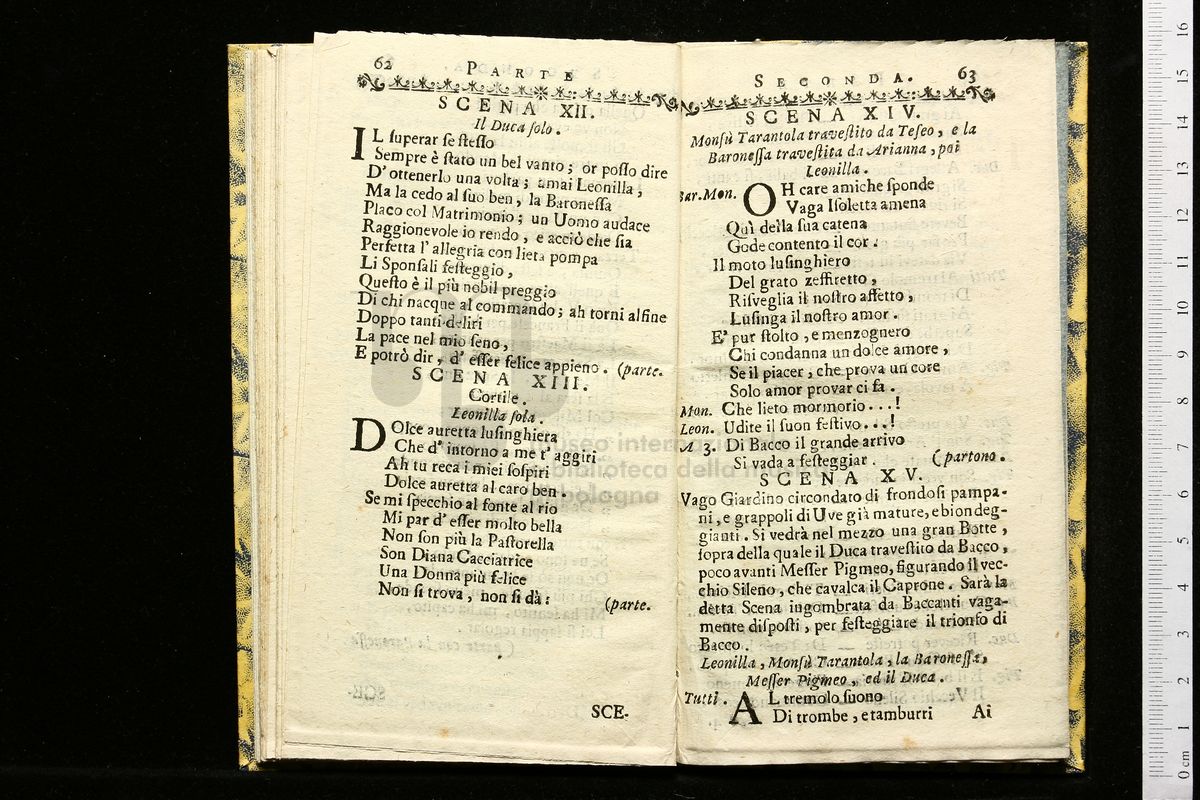 62
PARTE
SCENA XII.
Il Duca ſolo.
IL ſuperar ſe ſteſſo
Sempre è ſtato un bel vanto; or poſſo dire
D' ottenerlo una volta; amai Leonilla;
Ma la cedo al ſuo ben, la Baroneſſa
Placo col Matrimonio; un Uomo audace
Raggionevole io rendo, e acciò che ſia
Perfetta l' allegria con lieta pompa
Li Sponſali feſteggio,
Queſto è il più nobil preggio
Di chi nacque al commando; ah torni alfine
Doppo tanti deliri
La pace nel mio ſeno,
E potrò dir, d' eſſer felice appieno. (parte.
SCENA XIII.
Cortile.
Leonilla ſola.
DOlce auretta luſinghiera
Che d' intorno a me t' aggiri
Ah tu reca i miei ſoſpiri
Dolce auretta al caro ben.
Se mi ſpecchio al fonte al rio
Mi par d' eſſer molto bella
Non ſon più la Paſtorella
Son Diana Cacciatrice
Una Donna più felice
Non ſi trova, non ſi dà: (parte.
SCE-
SECONDA. 63
SCENA XIV.
Monſù Tarantola traveſtito da Teſeo, e la
Baroneſſa traveſtita da Arianna, poi
Leonilla.
Bar.Mon. OH care amiche ſponde
Vaga Iſoletta amena
Quì della ſua catena
Gode contento il cor:
Il moto luſinghiero
Del grato zeffiretto,
Riſveglia il noſtro affetto,
Luſinga il noſtro amor.
E' pur ſtolto, e menzognero
Chi condanna un dolce amore,
Se il piacer, che prova un core
Solo amor provar ci fa.
Mon. Che lieto mormorio...!
Leon. Udite il ſuon feſtivo...!
A 3. Di Bacco il grande arrivo
Si vada a feſteggiar. (partono.
SCENA XV.
Vago Giardino circondato di frondoſi pampa-
ni, e grappoli di Uve già mature, e biondeg-
gianti. Si vedrà nel mezzo una gran Botte,
ſopra della quale il Duca traveſtito da Bacco,
poco avanti Meſſer Pigmeo, figurando il vec-
chio Sileno, che cavalca il Caprone. Sarà la
detta Scena ingombrata da Baccanti vaga-
mente diſpoſti, per feſteggiare il trionfo di
Bacco.
Leonilla, Monſù Tarantola, la Baroneſſa,
Meſſer Pigmeo, ed il Duca.
Tutti. AL tremolo ſuono
Di trombe, e tamburri
Ai